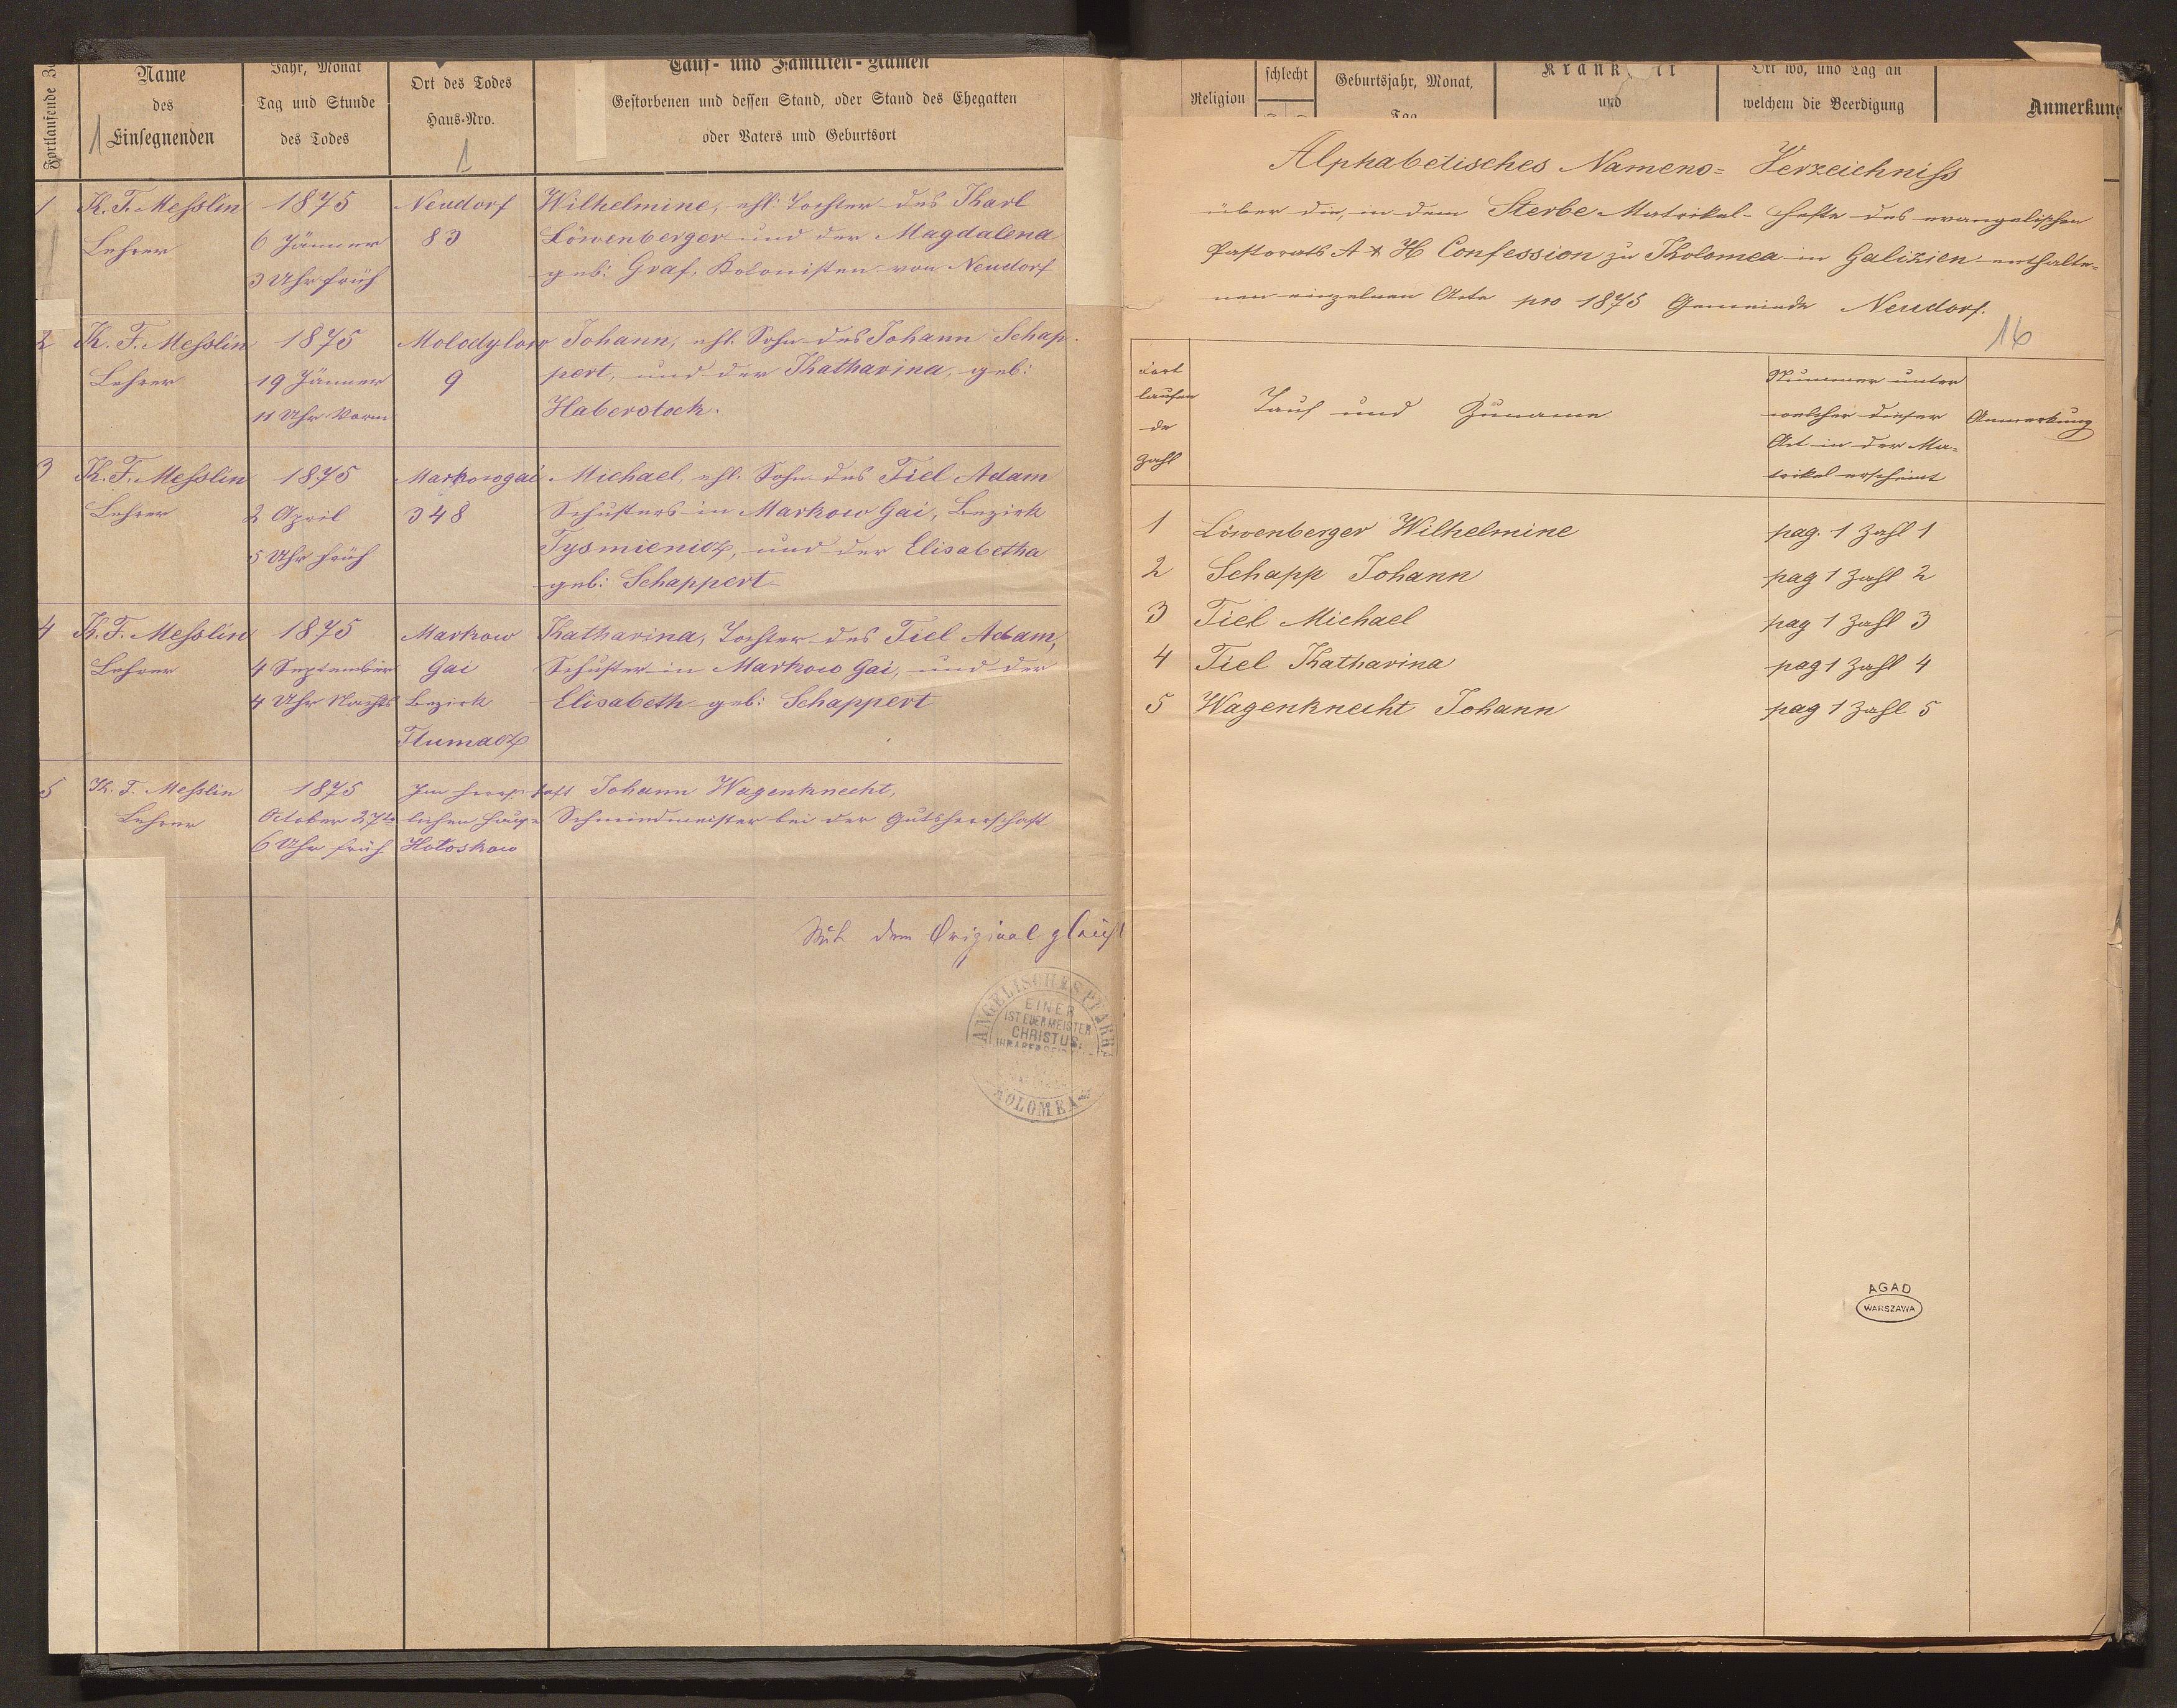 Fortlaufende
Name
des
1 Einsegnenden
Jahr, Monat
Tag und Stunde
des Todes
Ort des Todes
Haus-Nro.
1
Tauf- und Familien-Namen
Gestorbenen und dessen Stand, oder Stand des Ehegatten
oder Vaters und Geburtsort
1
K. F. Meßlin
Lehrer
1875
6 Jänner
3 Uhr früh
Neudorf
83
Wilhelmine, ehl: Tochter des Karl
Löwenberger und der Magdalena
geb: Graf, Kolonisten von Neudorf
2
K. F. Meßlin
Lehrer
1875
19 Jänner
11 Uhr Vorm
Molodylow
9
Johann, ehl. Sohn des Johann Schap-
pert, und der Katharina, geb:
Haberstock.
3
K. F. Meßlin
Lehrer
1875
2 April
5 Uhr früh
Markowgai
348
Michael, ehl. Sohn des Tiel Adam
Schusters in Markow Gai, Bezirk
Tysmienicz, und der Elisabetha
geb: Schappert
4
K. F. Meßlin
Lehrer
1875
4 September
4 Uhr Nachts
Markow
Gai
Bezirk
Tlumacz
Katharina, Tochter des Tiel Adam,
Schuster in Markow Gai, und der
Elisabeth geb: Schappert
5
K. F. Meßlin
Lehrer
1875
October 27te
6 Uhr früh
Im herrschaft
lichen Hause
Hołoskow
Johann Wagenknecht,
Schmiedmeister bei der Gutsherrschaft
Mit dem Original gleich
ANGELISCHES PFARR
EINER
IST EUER MEISTER
CHRISTUS.
KOLOMEA
Religion
schlecht
Geburtsjahr, Monat,
Tag
Krank it
und
Ort wo, und Tag an
welchem die Beerdigung
Anmerkung
Alphabetisches Namens= Verzeichniß
über die, in dem Sterbe Matrikel-Hefte des evangelischen
Pastorats A & H Confession zu Kolomea in Galizien enthalte-
nen einzelnen Acte pro 1875 Gemeinde Neudorf.
16
Fort
laufen
de
Zahl
Tauf und Zuname
Nummer unter
welcher dieser
Act in der Ma-
trikel erscheint
Anmerkung
1 Löwenberger Wilhelmine pag. 1 Zahl 1
2 Schapp Johann pag 1 Zahl 2
3 Tiel Michael pag 1 Zahl 3
4 Tiel Katharina pag 1 Zahl 4
5 Wagenknecht Johann pag 1 Zahl 5
AGAD
WARSZAWA